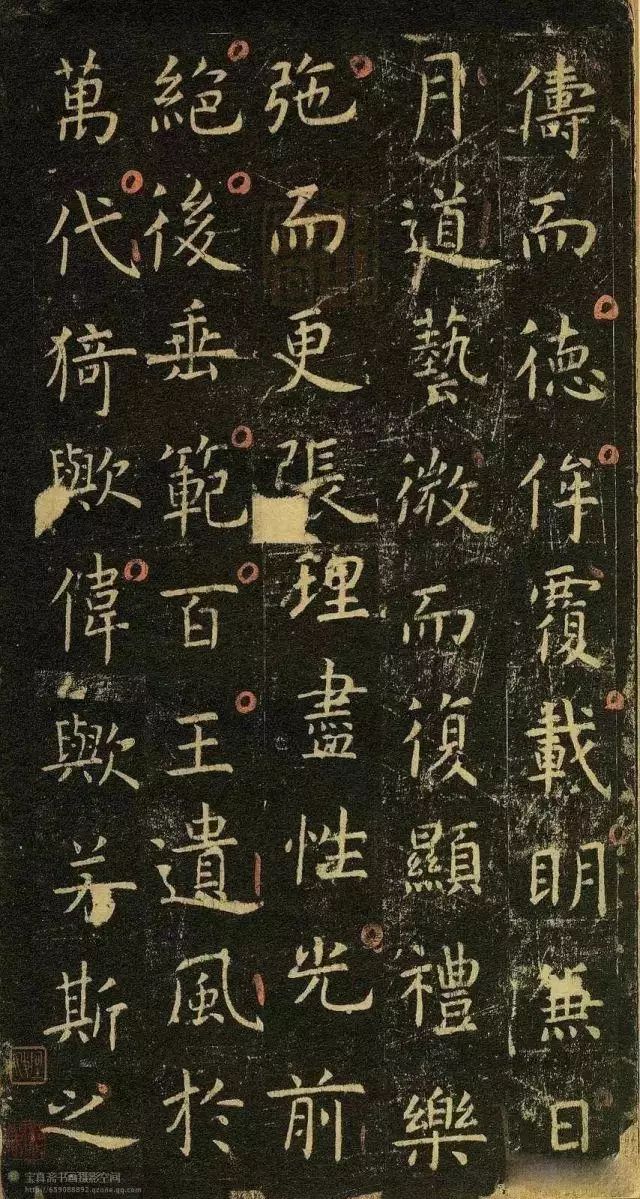 儔而德侔覆載明無日
月道藝微而復顯禮樂
弛而更張理盡性光前
絕後垂範百王遺風於
萬代猗歟偉歟若斯之
宝真斋书画摄影空间
http://659088892.qzone.qq.com